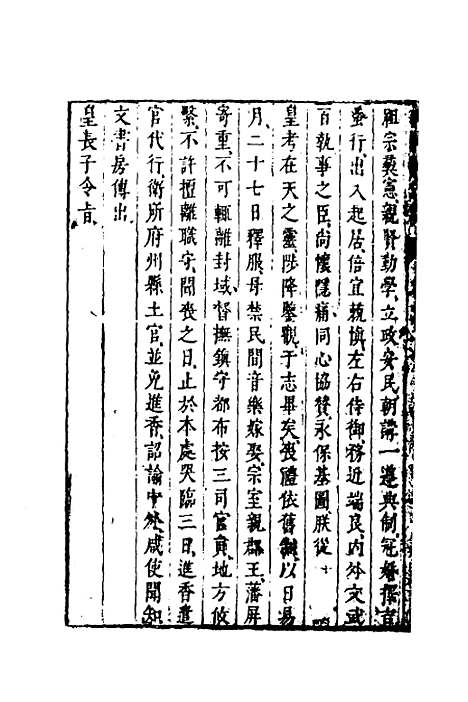 祖宗彝憲親賢勤學立政安民朝講一遵典制冠婚擇吉
蚤行出入起居倍宜兢慎左右侍御務近端良內外文武
百執事之臣尚懷隱痛同心協贊永保基圖朕從
皇考在天之靈陟降鑒觀于志畢矣喪禮依舊制以日易
月二十七日釋服毋禁民間音樂嫁娶宗室親郡王藩屏
寄重不可輒離封域督撫鎮守都布按三司官員地方攸
繫不許擅離職守聞喪之日止於本處哭臨三日進香遣
官代行衛所府州縣土官並免進香詔諭中外咸使聞知
文書房傳出
皇長子令旨